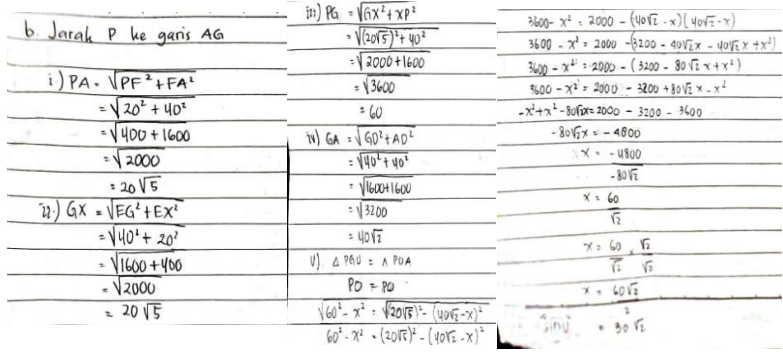 b. Jarak P ke garis AG
i) PA = √PF² + FA²
= √20² + 40²
= √400 + 1600
= √2000
= 20√5
ii.) GX = √EG² + EX²
= √40² + 20²
= √1600 + 400
= √2000
= 20√5
iii) PG = √GX² + XP²
= √(20√5)² + 40²
= √2000 + 1600
= √3600
= 60
iv) GA = √GD² + AD²
= √40² + 40²
= √1600 + 1600
= √3200
= 40√2
v). △ PGO = △ POA
PO = PO
√60² - x² = √(20√5)² - (40√2 - x)²
60² - x² = (20√5)² - (40√2 - x)²
3600 - x² = 2000 - (40√2 - x)(40√2 - x)
3600 - x² = 2000 - (3200 - 40√2x - 40√2x + x²)
3600 - x² = 2000 - (3200 - 80√2x + x²)
3600 - x² = 2000 - 3200 + 80√2x - x²
-x² + x² - 80√2x = 2000 - 3200 - 3600
-80√2x = -4800
x = -4800
-80√2
x = 60
√2
x = 60 . √2
√2 √2
x = 60√2
2
= 30√2